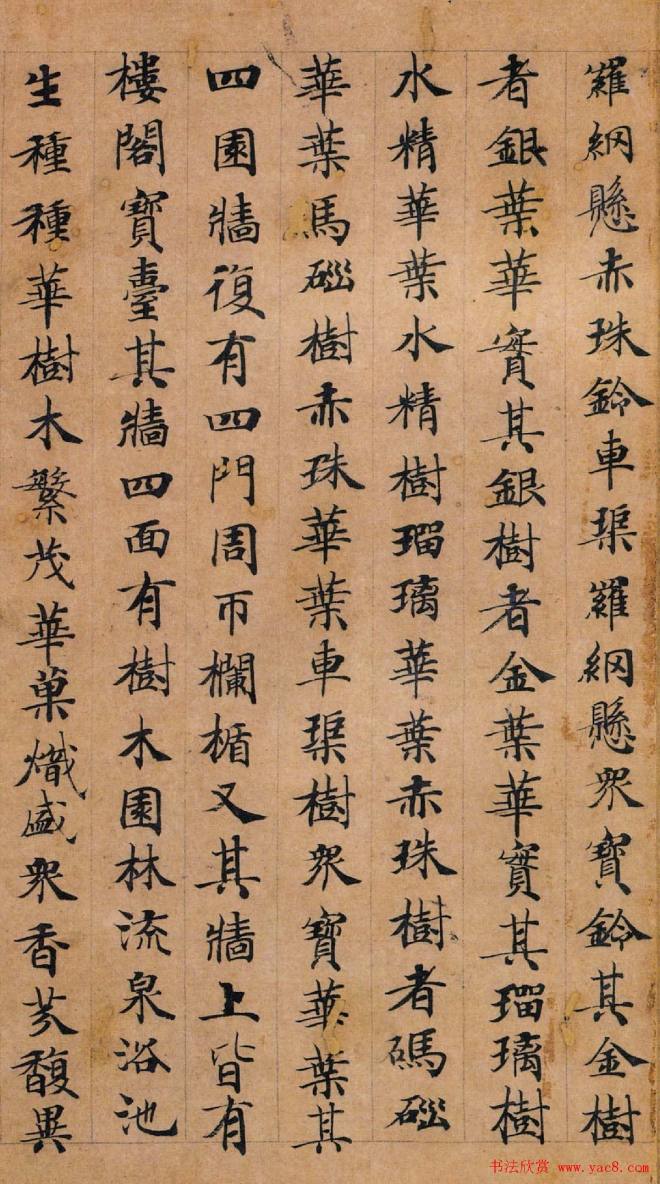 羅網懸赤珠鈴車渠羅網懸衆寶鈴其金樹
者銀葉華實其銀樹者金葉華實其瑠璃樹
水精華葉水精樹瑠璃華葉赤珠樹者碼碯
華葉馬碯樹赤珠華葉車渠樹衆寶華葉其
四園牆復有四門周帀欄楯又其牆上皆有
樓閣寶臺其牆四面有樹木園林流泉浴池
生種種華樹木繁茂華菓熾盛衆香芬馥異
书法欣赏 www.yac8.com